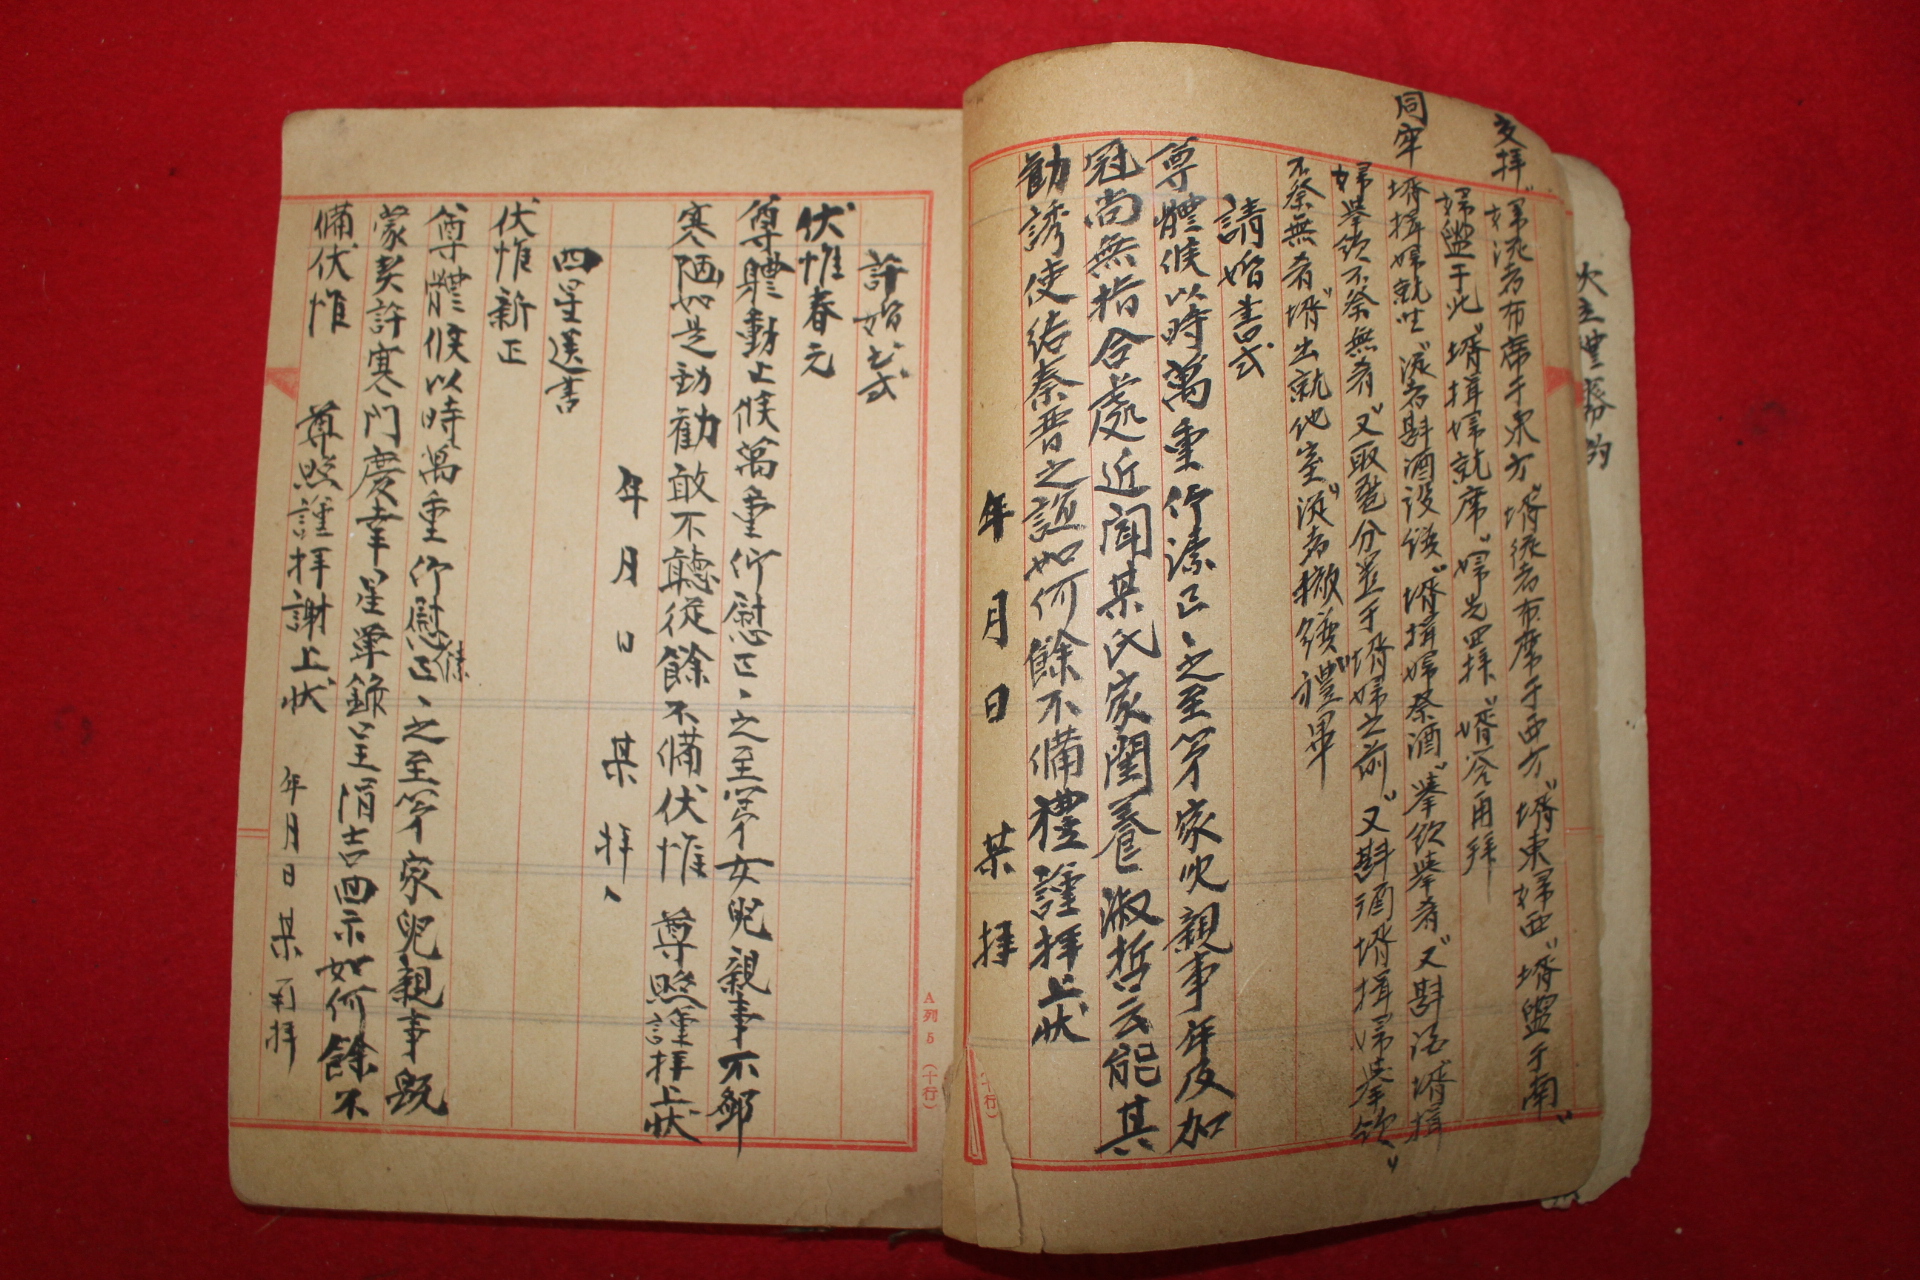 交拜
婦從者布席于東方 壻從者布席于西方 壻東婦西 壻盥于南
婦盥于北 壻揖婦就席 婦先四拜 壻答再拜
同牢
壻揖婦就坐 從者斟酒設饌 壻揖婦祭酒 擧飮擧肴 又斟酒壻揖
婦擧飮不祭無肴 又取巹分置于壻婦之前 又斟酒壻揖婦擧飮
不祭無肴 壻出就他室 從者撤饌 禮畢
請婚書式
尊體候以時萬重仰溸區〻之至第家兒親事年及加
冠尚無指合處近聞某氏家閨養淑哲云能其
勸誘使結秦晋之誼如何餘不備禮謹拜上狀
年 月 日 某 拜
許婚書式
伏惟春元
尊體動止候萬重仰慰區〻之至第女兒親事不鄙
寒陋如是動勸敢不聽從餘不備伏惟 尊照謹拜上狀
年 月 日 某 拜
四星送書
伏惟新正
尊體候以時萬重仰慰溸區〻之至第家兒親事旣
蒙契許寒門慶幸星單錄呈涓吉回示如何餘不
備伏惟 尊照謹拜謝上狀 年 月 日 某 再拜
A列5 (十行)
十行)